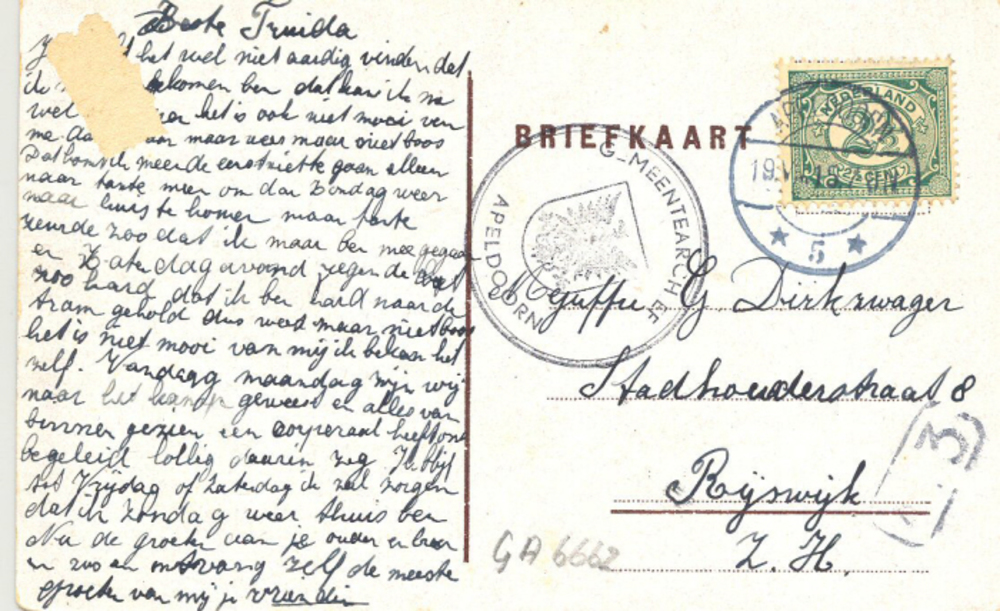 Beste Truida
het wel niet aardig vinden dat
ik bekomen ben dat kan ik me
wel het is ook niet mooi van
me maar wees maar niet boos
eerst niet te gaan alleen
naar tante meer om dan Zondag weer
naar huis te komen maar tante
zeurde zoo dat ik maar ben mee gegaan
en Zaterdagavond regende het
zoo hard dat ik ben hard naar de
tram gehold dus word maar niet boos
het is niet mooi van mij ik beken het
zelf. Vandaag maandag zijn wij
naar het kamp geweest en alles van
binnen gezien een corperaal heeft ons
begeleid lollig daarin zeg Ik blijf
tot Vrijdag of Zaterdag ik zal zorgen
dat ik Zondag weer thuis ben
Nu de groeten aan je ouders en broer
en zoo en ontvang zelf de meeste
groeten van mij je vriendin
BRIEFKAART
NEDERLAND
2½
2½ CENT
5
GEMEENTEARCHIEF
APELDOORN
Mejuffr G Dirkzwager
Stadhouderstraat 8
Rijswijk
Z. H.
GA 6662